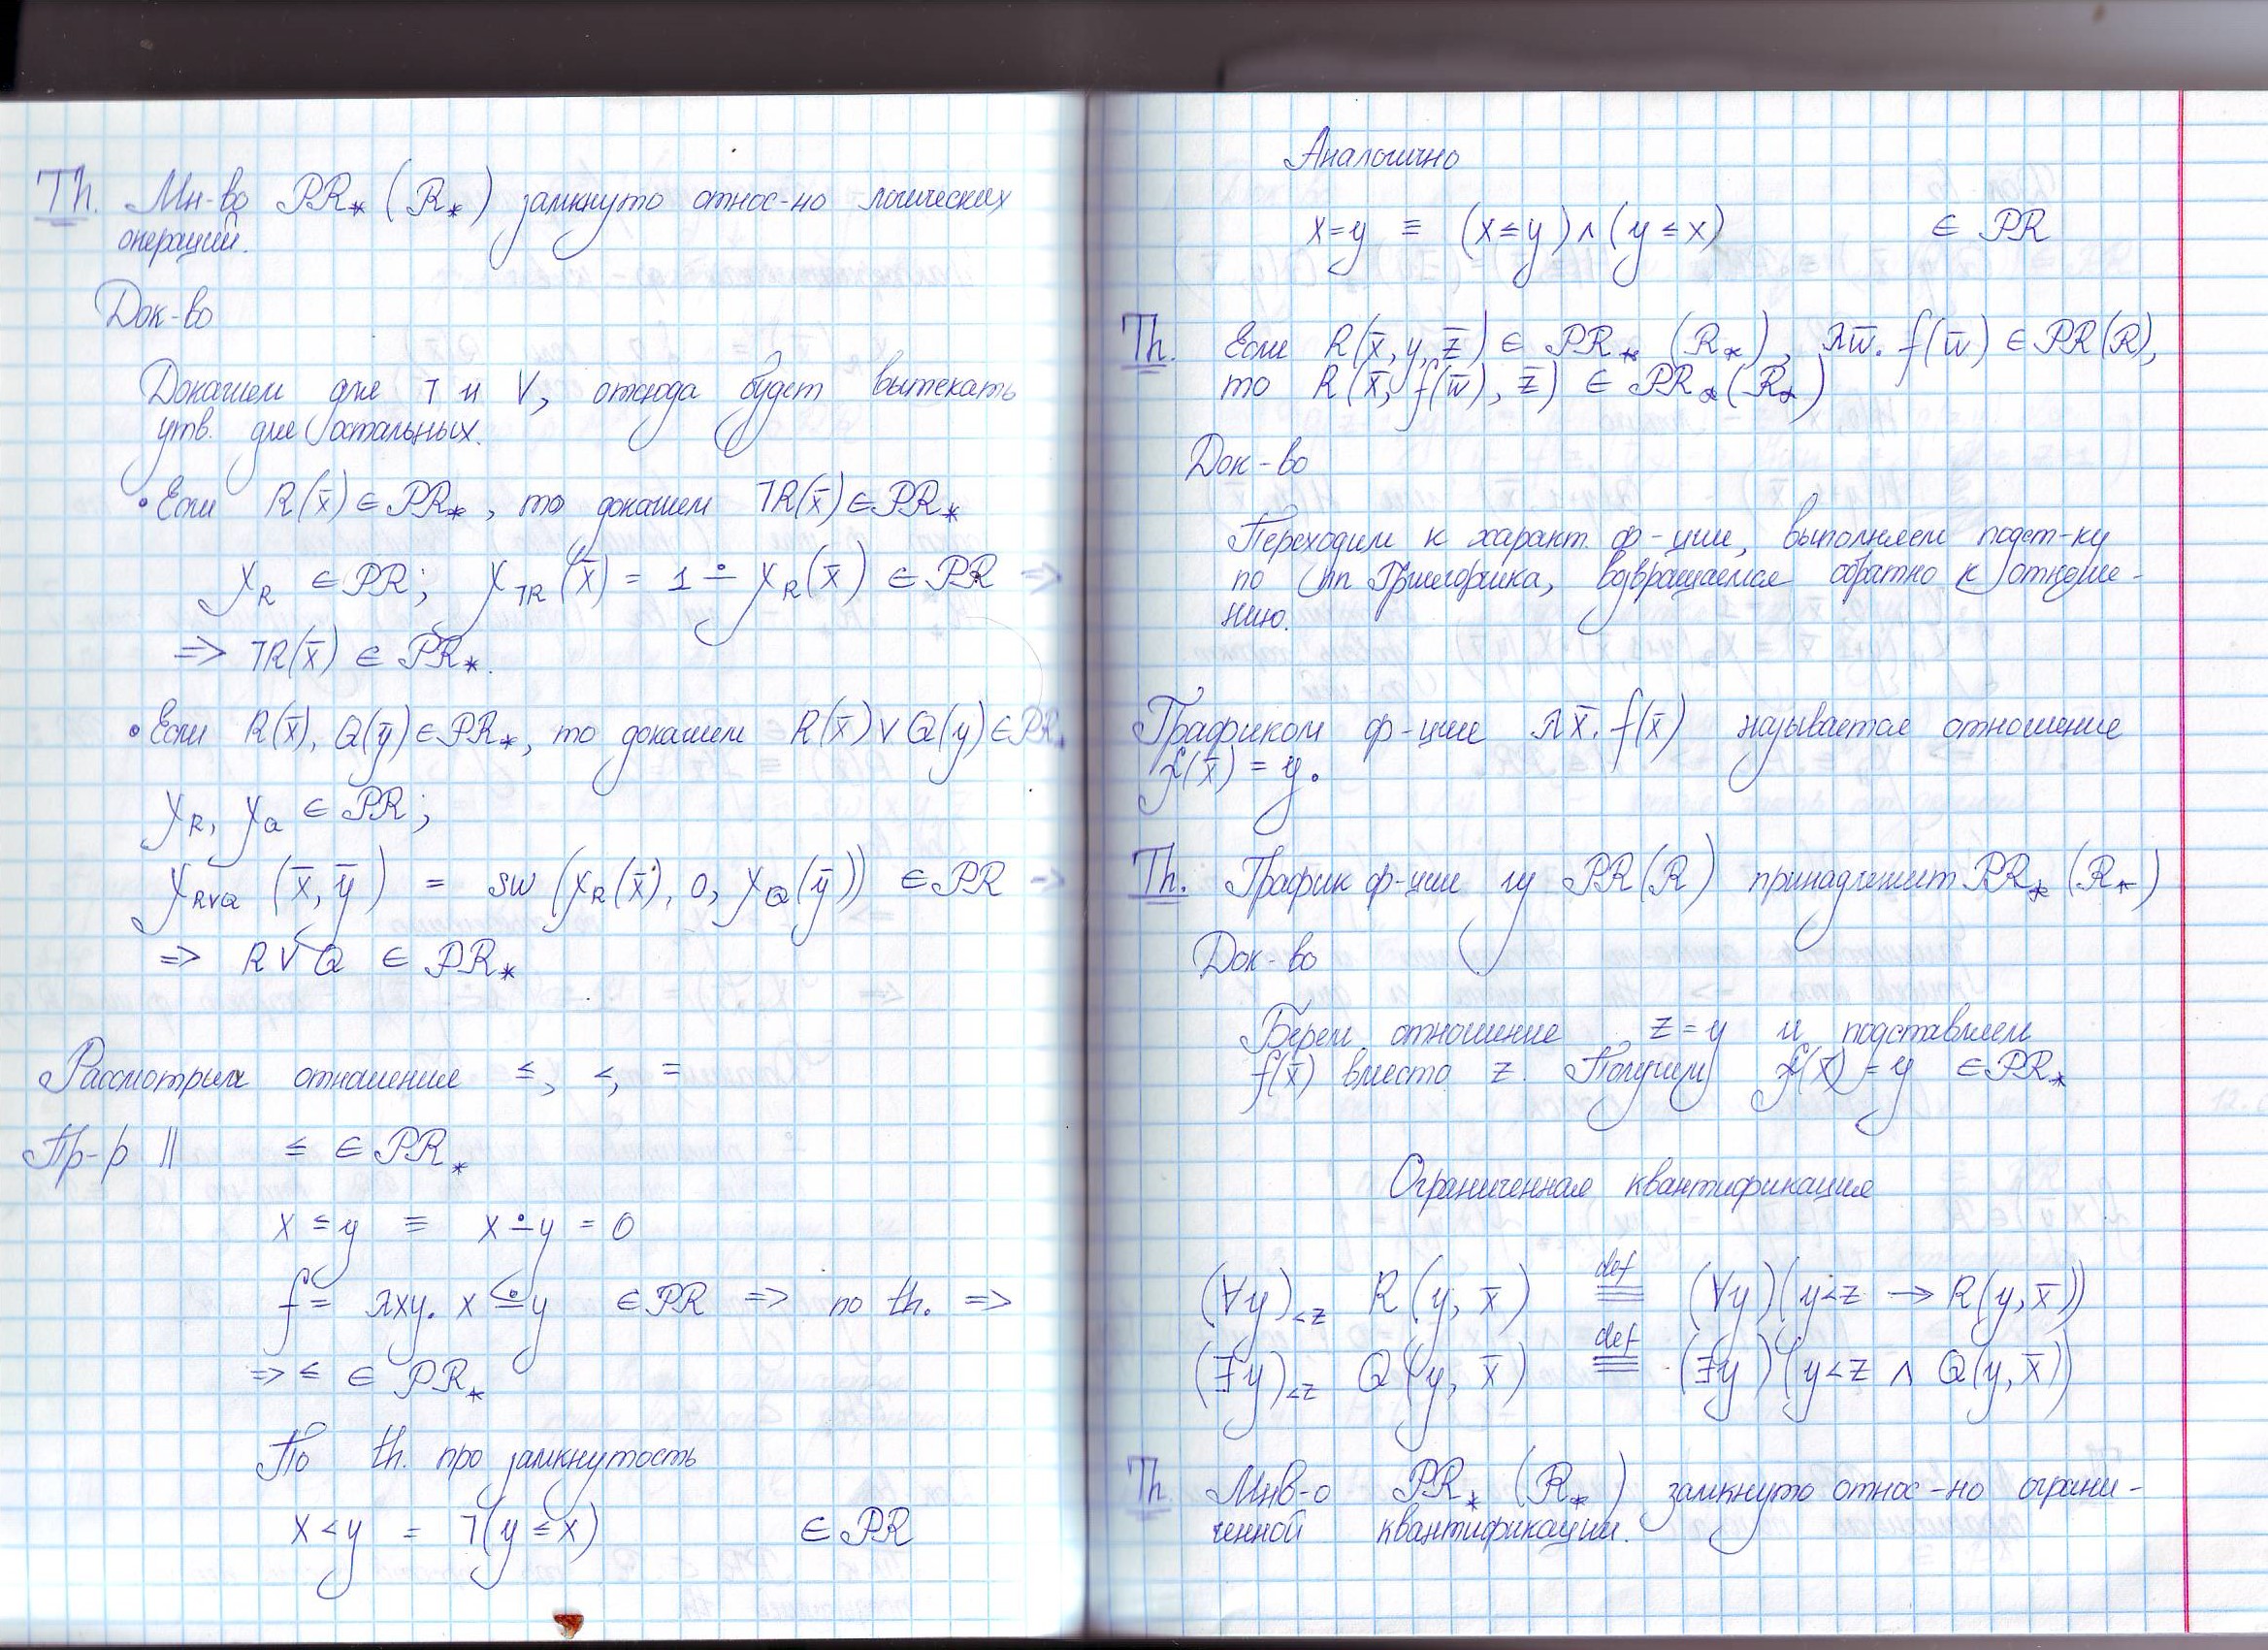 Th. Мн-во PR* (R*) замкнуто относ-но логических
операций.
Док-во
Докажем для ⌉ и ∨, отсюда будет вытекать
утв. для остальных.
• Если R(x̄) ∈ PR*, то докажем ⌉R(x̄) ∈ PR*
χ_R ∈ PR; χ_⌉R (x̄) = 1 ∸ χ_R(x̄) ∈ PR =>
=> ⌉R(x̄) ∈ PR*.
• Если R(x̄), Q(ȳ) ∈ PR*, то докажем R(x̄) ∨ Q(y) ∈ PR*
χ_R, χ_Q ∈ PR;
χ_R∨Q (x̄, ȳ) = sw (χ_R(x̄), 0, χ_Q(ȳ)) ∈ PR =>
=> R ∨ Q ∈ PR*
Рассмотрим отношения ≤, <, =
Пр-р || ≤ ∈ PR*
x ≤ y ≡ x ∸ y = 0
f = λxy. x ∸ y ∈ PR => по th. =>
=> ≤ ∈ PR*
По th. про замкнутость
x < y = ⌉(y ≤ x) ∈ PR
Аналогично
x = y ≡ (x ≤ y) ∧ (y ≤ x) ∈ PR
Th. Если R(x̄, y, z̄) ∈ PR* (R*), λw̄. f(w̄) ∈ PR(R),
то R(x̄, f(w̄), z̄) ∈ PR*(R*)
Док-во
Переходим к характ. ф-ции, выполняем подст-ку
по пп Гжегорчика, возвращаемся обратно к отноше-
нию.
Графиком ф-ции λx̄. f(x̄) называется отношение
f(x̄) = y.
Th. График ф-ции из PR(R) принадлежит PR* (R*)
Док-во
Берем отношение z = y и подставляем
f(x̄) вместо z. Получим f(x̄) = y ∈ PR*
Ограниченная квантификация
(∀y)_<z R(y, x̄) def== (∀y)(y<z → R(y, x̄))
(∃y)_<z Q(y, x̄) def== (∃y)(y<z ∧ Q(y, x̄))
Th Мнв-о PR* (R*) замкнуто относ-но ограни-
ченной квантификации.